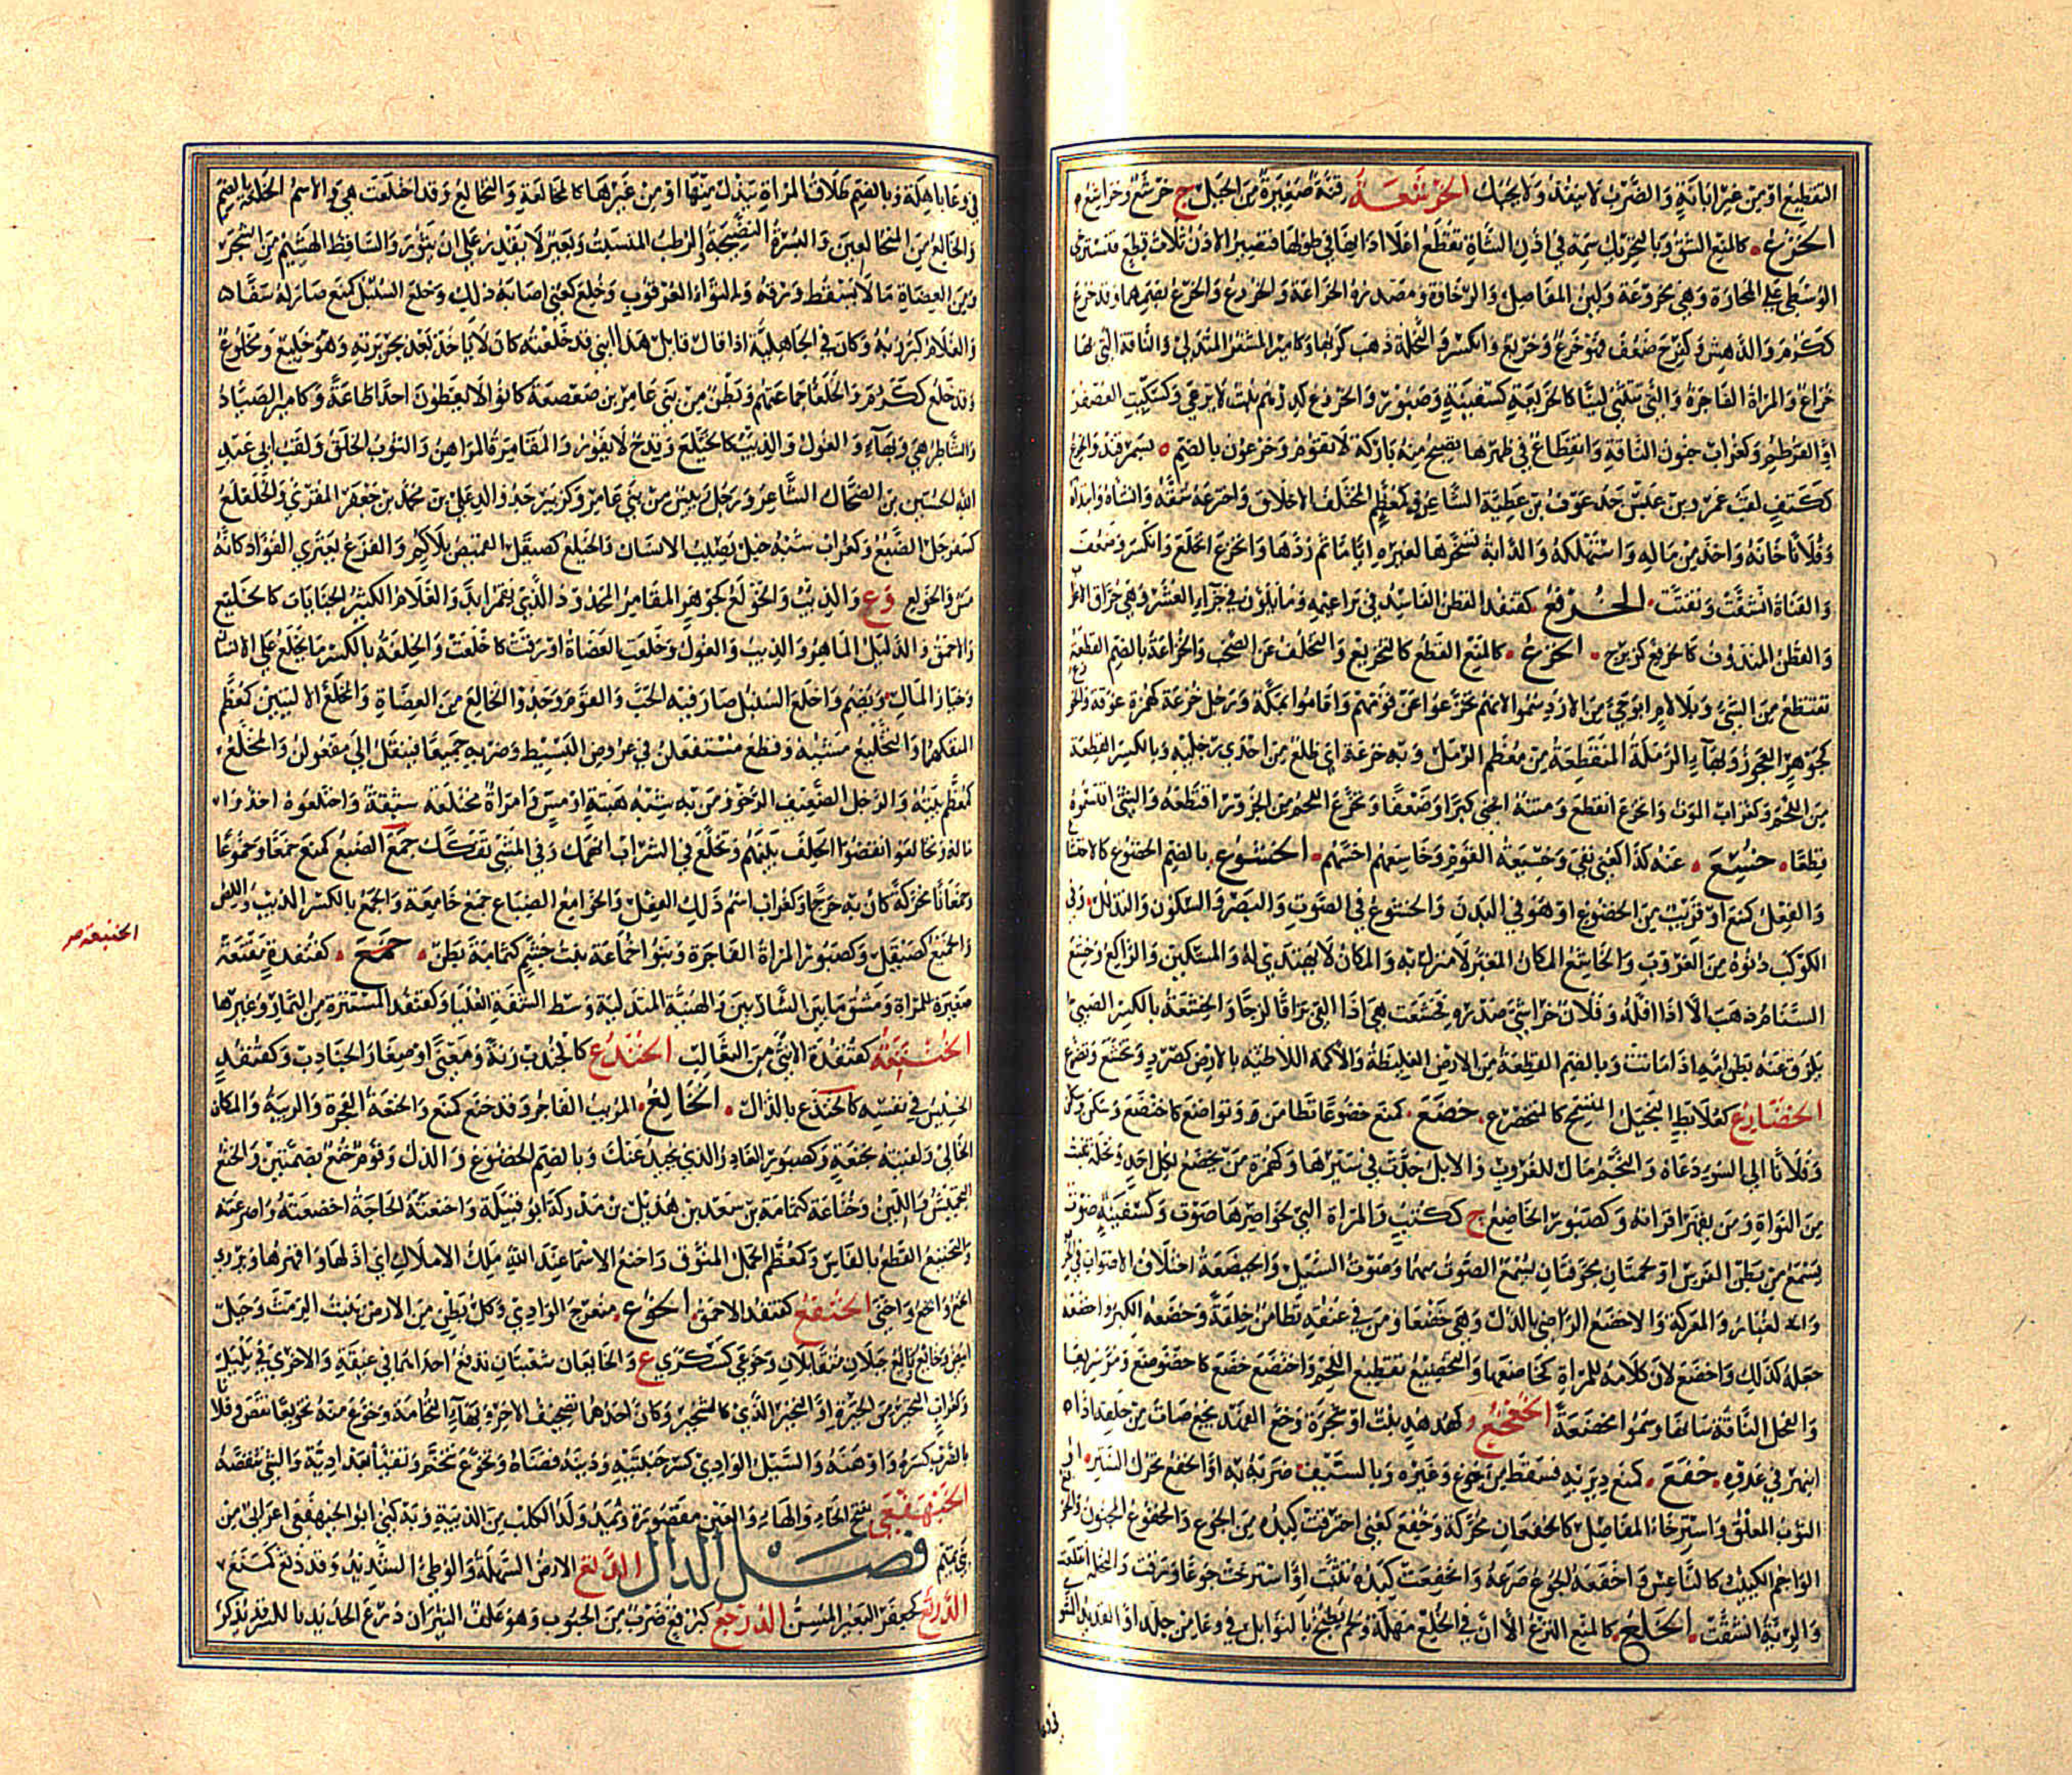 التقطيع او من غير ابانة والضرب لا ينفذ ولا يحيك الخرشعة قنة صغيرة من الجبل ج خرشع وخراشع
الخزع كالمنع الشق وبالتحريك سمة في اذن الشاة تقطع اعلا اذانها في طولها فتصير الاذن ثلاث قطع فتسترخي
الوسطى على المحارة وهي مخروعة ولين المفاصل والرخاوة ومصدره الخراعة والخروع والخرع بضمهما وقد خرع
ككرم والدهش وكفرح ضعف فهو خرع وخريع وانكسر والنخلة ذهب كربها وكامير المشفر المتدلي والناقة التي بها
خراع والمراة الفاجرة والتي تتثنى لينا كالخريعة كسفينة وصبور والخروع كدرهم نبت لا يرعى وكسكيت العصفر
او القرطم وكغراب جنون الناقة وانقطاع في ظهرها تصبح منه باركة لا تقوم وخرعون بالضم بسمرقند والخرع
ككتف لقب عمرو بن عبس جد عوف بن عطية الشاعر وكمعظم المختلف الاخلاق واخترعه شقه وانشاه وابتداه
وفلانا خانه واخذ من ماله واستهلكه والدابة تسخرها لغيره اياما ثم ردها وانخرع انخلع وانكسر وضعف
والقناة انشقت وتفتت الخرفع كقنفذ القطن الفاسد في براعيمه وما يكون في جراء العشر وهي حراق الاعراب
والقطن المندوف كالخرفع كزبرج الخزع كالمنع القطع كالتخزيع والتخلف عن الصحب والخزاعة بالضم القطعة
تقتطع من الشي وبلا لام ابو حي من الازد سموا لانهم تخزعوا عن قومهم واقاموا بمكة ورجل خزعة كهمزة عوقة والخوزع
كجوهر العجوز وبهاء الرملة المنقطعة من معظم الرمل وبه خزعة اي ظلع من احدى رجليه وبالكسر القطعة
من اللحم وكغراب الموت وانخزع انقطع ومتنه انحنى كبرا وضعفا وتخزع اللحم من الجزور اقتطعه والشي اقتسموه
قطعا خسع عنه كذا كعني نفي وخسيعة القوم وخاسعهم اخسهم الخشوع بالضم الخضوع كالاختشاع
والفعل كمنع او قريب من الخضوع او هو في البدن والخشوع في الصوت والبصر والسكون والتذلل وفي
الكوكب دنوه من الغروب والخاشع المكان المغبر لا منزل به والمكان لا يهتدى له والمستكين والراكع وخشع
السنام ذهب الا اقله وفلان خراشي صدره فخشعت هي اذا القى بزاقا لزجا والخشعة بالكسر الصبي
يلزق عنه بطن امه اذا ماتت وبالضم القطعة من الارض الغليظة والاكمة اللاطئة بالارض كصرد وتخشع تضرع
الخضارع كعلابط البخيل المتسمح كالمتخضرع خضع كمنع خضوعا تطامن وتواضع كاختضع وسكن
وفلانا الى السوء دعاه والنجم مال للغروب والابل جدت في سيرها وكهمزة من يخضع لكل احد ونخلة تنبت
من النواة ومن يقهر اقرانه وكصبور الخاضع ج ككتب والمراة التي لخواصرها صوت وكسفينة صوت
يسمع من بطن الفرس او لحمتان مجوفتان يسمع الصوت منهما وصوت السيل والخيضعة اختلاف الاصوات في الحرب
والغبار والمعركة والاخضع الراضي بالذل وهي خضعا ومن في عنقه تطامن خلقة وخضعه الكبر واخضعه
جعله كذلك واخضع لان كلامه للمراة كخاضعها والتخضيع تقطيع اللحم واختضع خضع كاخضوضع ومر سريعا
والفحل الناقة سانها وسموا مخضعة الخعخع كهدهد نبت او شجرة وخع الفهد يخع صات من حلقه اذا
انبهر في عدوه خفع كمنع دير به فسقط من جوع وغيره وبالسيف ضربه به او الخفع تحرك الستر او
الثوب المعلق واسترخاء المفاصل كالخفعان محركة وخفع كعني احترقت كبده من الجوع والخفوع المجنون
الواجم الكئيب كالناعس واخفعه الجوع صرعه وانخفعت كبده تثنت او استرخت جوعا ورقت والنخلة انقلعت
والرئة انشقت الخلع كالمنع النزع الا ان في الخلع مهلة ولحم يطبخ بالتوابل في وعاء من جلد او القديد المشوي
في وعا
في وعا باهالة وبالضم طلاق المراة ببذل منها او من غيرها كالمخالعة والتخالع وقد اختلعت هي والاسم الخلعة بالضم
والخالع من المخالعين والبسرة النضيجة والرطب المنسبت وبعير لا يقدر على ان يثور والساقط الهشيم من الشجر
ومن العضاه ما لا يسقط ورقه والتواء العرقوب وخلع كعني اصابه ذلك وخلع السنبل كمنع صار له سفا
والغلام كبر زبه وكان في الجاهلية اذا قال قائل هذا ابني قد خلعته كان لا يؤخذ بعد بجريرته وهو خليع ومخلوع
وقد خلع ككرم والخلعا جماعتهم وبطن من بني عامر بن صعصعة كانوا لا يعطون احدا طاعة وكامير الصياد
والشاطر وهي بهاء والغول والذئب كالخيلع وقدح لا يفوز والمقامر المراهن والثوب الخلق ولقب ابي عبد
الله الحسين بن الضحاك الشاعر ورجل رئيس من بني عامر وكزبير جد والد علي بن محمد بن جعفر المقري والخلعلع
كسفرجل الضبع وكغراب شبه خبل يصيب الانسان والخيلع كصيقل القميص بلا كم والفزع يعتري الفؤاد كانه
مس والخولع وع والذئب والخولع كجوهر المقامر المحدود الذي يقمر ابدا والغلام الكثير الجنايات كالخليع
والاحمق والدليل الماهر والذئب والغول وخلعت العضاه اورقت كاخلعت والخلعة بالكسر ما يخلع على الانسان
وخيار المال ويضم واخلع السنبل صار فيه الحب والقوم وجدوا الخالع من العضاه والمخلع الاليتين كمعظم
المنفكهما والتخليع مشيته وقطع مستفعلن في عروض البسيط وضربه جميعا فينقل الى مفعولن والمخلع
كمعظم بيته والرجل الضعيف الرخو ومن به شبه هبتة او مس وامراة مختلعة شبقة واختلعوه اخذوا
ماله وتخالعوا نقضوا الحلف بينهم وتخلع في الشراب انهمك وفي المشي تفكك خمع الضبع كمنع خمعا وخموعا
وخمعانا محركة كان به عرجا وكغراب اسم ذلك الفعل والخوامع الضباع جمع خامعة والخمع بالكسر الذئب واللص
والخيمع كصيقل وكصبور المراة الفاجرة وبنو خماعة بنت جشم كثمامة بطن خمع كقنفذة
صغيرة للمراة ومشق ما بين الشاربين والهنية المتدلية وسط الشفة العليا وكقنفذ المستترة من الثمار وغيرها
الخنتعة كقنفذة الانثى من الثعالب الخندع كالجندب زنة ومعنى او صغار الجنادب وكقنفذ
الخسيس في نفسه كالخنذع بالذال الخانع المريب الفاجر وقد خنع كمنع والخنعة الفجرة والريبة والمكان
الخالي ولقيته بخنعة وكصبور الغادر والذي يحيد عنك وبالضم الخضوع والذل وقوم خنع بضمتين والخنع
التجميش واللين وخناعة كثمامة بن سعد بن هذيل بن مدركة ابو قبيلة واخنعته الحاجة اخضعته واضرعته
والتخنيع القطع بالفاس وكمعظم الجمل المنوق واخنع الاسماء عند الله ملك الاملاك اي اذلها واقهرها ويروى
انخع وابخع واخنى الخنفع كقنفذ الاحمق الخوع منعرج الوادي وكل بطن من الارض ينبت الرمث وجبل
ابيض وخائع ونائع جبلان متقابلان وخوعى كسكرى ع والخائعان شعبتان تدفع احداهما في غيقة والاخرى في يليل
وكغراب التحير من الحيرة او النخير الذي كالشخير وكان احدهما تصحيف الاخر وبهاء النخامة وخوع منه تخويعا نقص وفلانا
بالضرب كسره واوهنه والسيل الوادي كسر جنبتيه ودينه قضاه وتخوع تنخم وتقيا والشي تنقصه
الخيهفعى بفتح الخاء والهاء والعين مقصورة وتمد ولد الكلب من الذئبة وبه كني ابو الخيهفعى اعرابي من
بني تميم فصل الدال الدثع الارض السهلة والوطئ الشديد وقد دثع كمنع
الدرثع كجعفر البعير المسن الدرجع كبرقع ضرب من الحبوب وهو علف الثيران درع الحديد بالكسر قد يذكر
الخنبعة صح